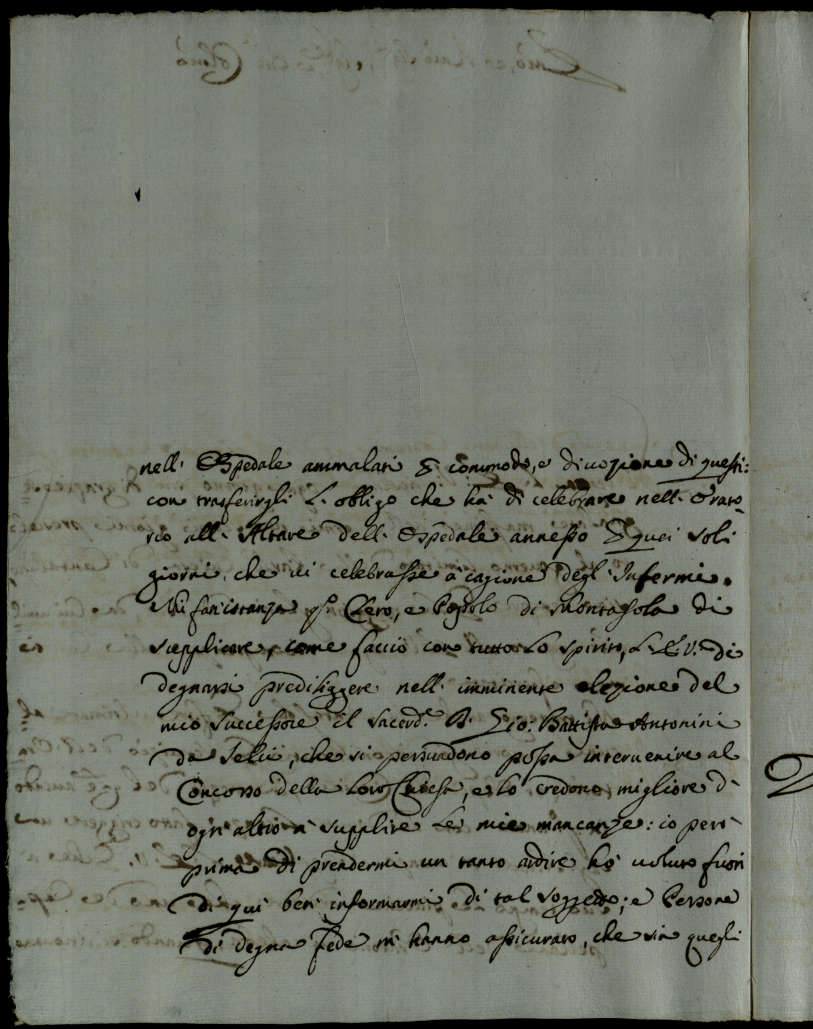 nell' Ospedale ammalati p commodo, e divozione di questi:
con trasferirgli l'obligo che ha di celebrare nell'Orato-
rio all'Altare dell'Ospedale annesso p quei soli
giorni, che vi celebrasse a cagione degl'Infermi.
Mi fan istanza Clero, e Popolo di Montasola di
supplicare, come faccio con tutto lo spirito, L'E.V. di
degnarsi prediliggere nell'imminente elezione del
mio successore il Sacerd.e D. Gio: Battista Antonini
da Selci, che si persuadono possa intervenire al
Concorso della loro Chiesa, e lo credono migliore d'
ogn'altro a supplire le mie mancanze: io però
prima di prendermi un tanto ardire hò voluto fuori
di qui ben informarmi di tal soggetto; e Persone
di degna fede m'hanno assicurato, che sia quegli